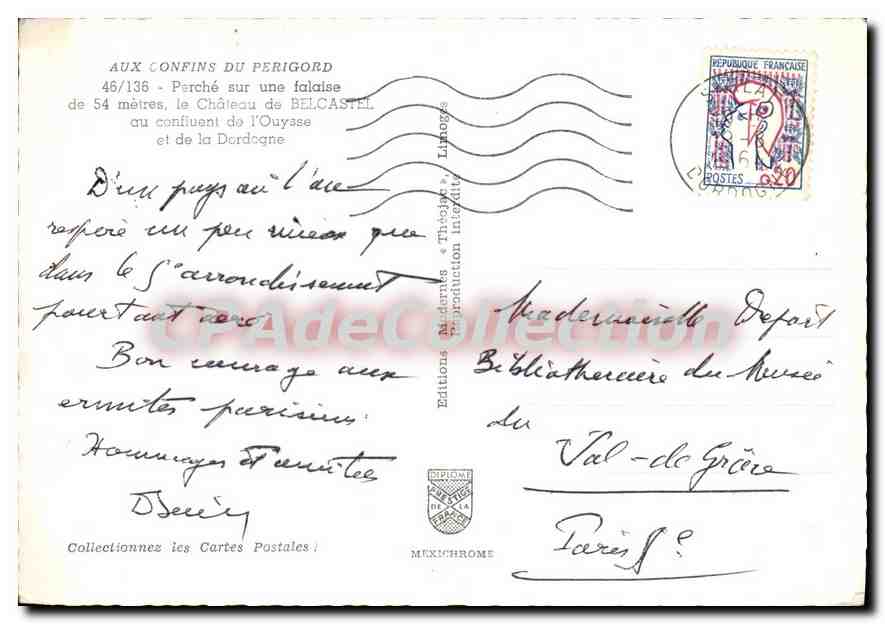 AUX CONFINS DU PERIGORD
46/136 - Perché sur une falaise
de 54 mètres, le Château de BELCASTEL
au confluent de l'Ouysse
et de la Dordogne
D'un pays où l'on
respire un peu mieux que
dans le 5e arrondissement
pourtant aéré
Bon courage aux
ermites parisiens.
Hommages et amitiés
Collectionnez les Cartes Postales !
Editions Modernes « Théojac », Limoges
Reproduction interdite
DIPLOME
PRESTIGE
DE LA
FRANCE
MEXICHROME
REPUBLIQUE FRANÇAISE
POSTES 0,20
Mademoiselle Depart
Bibliothécaire du Musée
du
Val-de-Grâce
Paris 5e
CPAdeCollection